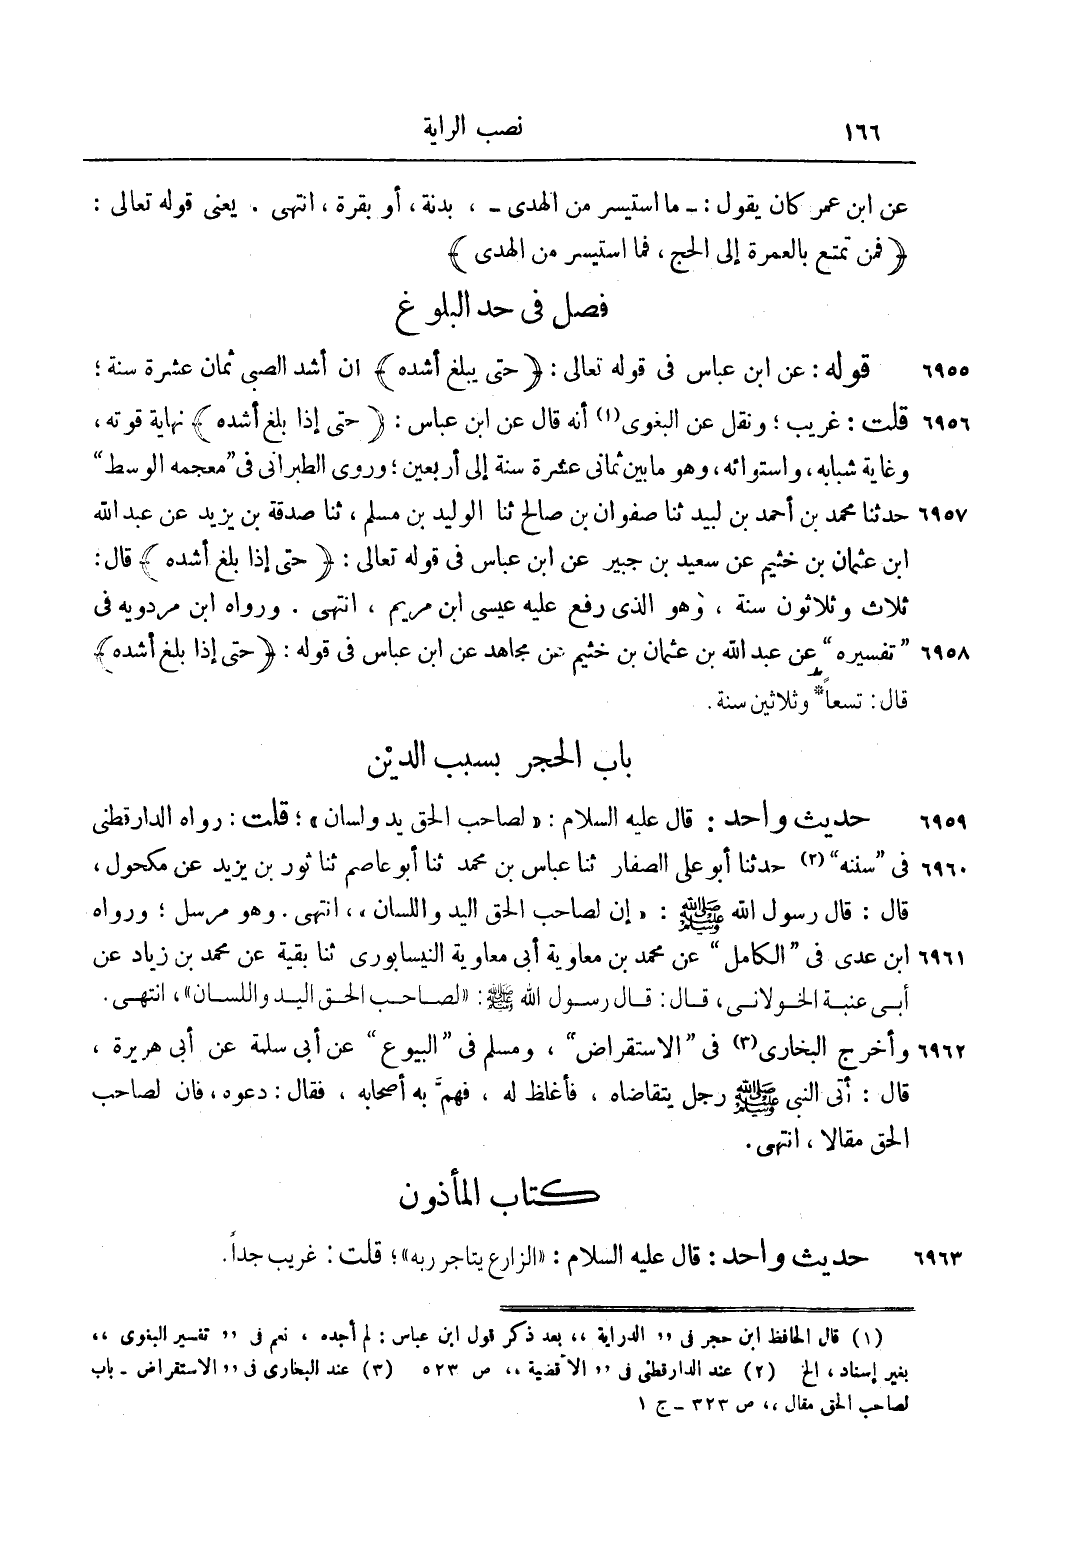 ١٦٦ نصب الراية
عن ابن عمر كان يقول : ـ ما استيسر من الهدى ـ ، بدنة ، أو بقرة ، انتهى . يعنى قوله تعالى :
﴿ فمن تمتع بالعمرة إلى الحج ، فما استيسر من الهدى ﴾
فصل فى حد البلوغ
٦٩٥٥ قوله : عن ابن عباس فى قوله تعالى : ﴿ حتى يبلغ أشده ﴾ ان أشد الصبى ثمان عشرة سنة ؛
٦٩٥٦ قلت : غريب ؛ ونقل عن البغوى (١) أنه قال عن ابن عباس : ﴿ حتى إذا بلغ أشده ﴾ نهاية قوته ،
وغاية شبابه ، واستوائه ، وهو مابين ثمانى عشرة سنة إلى أربعين ؛ وروى الطبرانى فى "معجمه الوسط"
٦٩٥٧ حدثنا محمد بن أحمد بن لبيد ثنا صفوان بن صالح ثنا الوليد بن مسلم ، ثنا صدقة بن يزيد عن عبد الله
ابن عثمان بن خثيم عن سعيد بن جبير عن ابن عباس فى قوله تعالى : ﴿ حتى إذا بلغ أشده ﴾ قال :
ثلاث وثلاثون سنة ، وهو الذى رفع عليه عيسى ابن مريم ، انتهى . ورواه ابن مردويه فى
٦٩٥٨ "تفسيره" عن عبد الله بن عثمان بن خثيم عن مجاهد عن ابن عباس فى قوله : ﴿ حتى إذا بلغ أشده ﴾
قال : تسعاً* وثلاثين سنة .
باب الحجر بسبب الديْن
٦٩٥٩ حديث واحد : قال عليه السلام : « لصاحب الحق يد ولسان » ؛ قلت : رواه الدارقطنى
٦٩٦٠ فى "سننه" (٢) حدثنا أبو على الصفار ثنا عباس بن محمد ثنا أبو عاصم ثنا ثور بن يزيد عن مكحول ،
قال : قال رسول الله ﷺ : « إن لصاحب الحق اليد واللسان » ، انتهى . وهو مرسل ؛ ورواه
٦٩٦١ ابن عدى فى "الكامل" عن محمد بن معاوية أبى معاوية النيسابورى ثنا بقية عن محمد بن زياد عن
أبى عنبة الخولانى ، قال : قال رسول الله ﷺ : «لصاحب الحق اليد واللسان» ، انتهى .
٦٩٦٢ وأخرج البخارى (٣) فى "الاستقراض" ، ومسلم فى "البيوع" عن أبى سلمة عن أبى هريرة ،
قال : أتى النبى ﷺ رجل يتقاضاه ، فأغلظ له ، فهمَّ به أصحابه ، فقال : دعوه ، فان لصاحب
الحق مقالا ، انتهى .
كتاب المأذون
٦٩٦٣ حديث واحد : قال عليه السلام : «الزارع يتاجر ربه» ؛ قلت : غريب جداً .
(١) قال الحافظ ابن حجر فى ,, الدراية ,, بعد ذكر قول ابن عباس : لم أجده ، نعم فى ,, تفسير البغوى ,,
بغير إسناد ، الخ (٢) عند الدارقطنى فى ,, الأقضية ,, ص ٥٢٣ (٣) عند البخارى فى ,, الاستقراض ـ باب
لصاحب الحق مقال ,, ص ٣٢٣ ـ ج ١